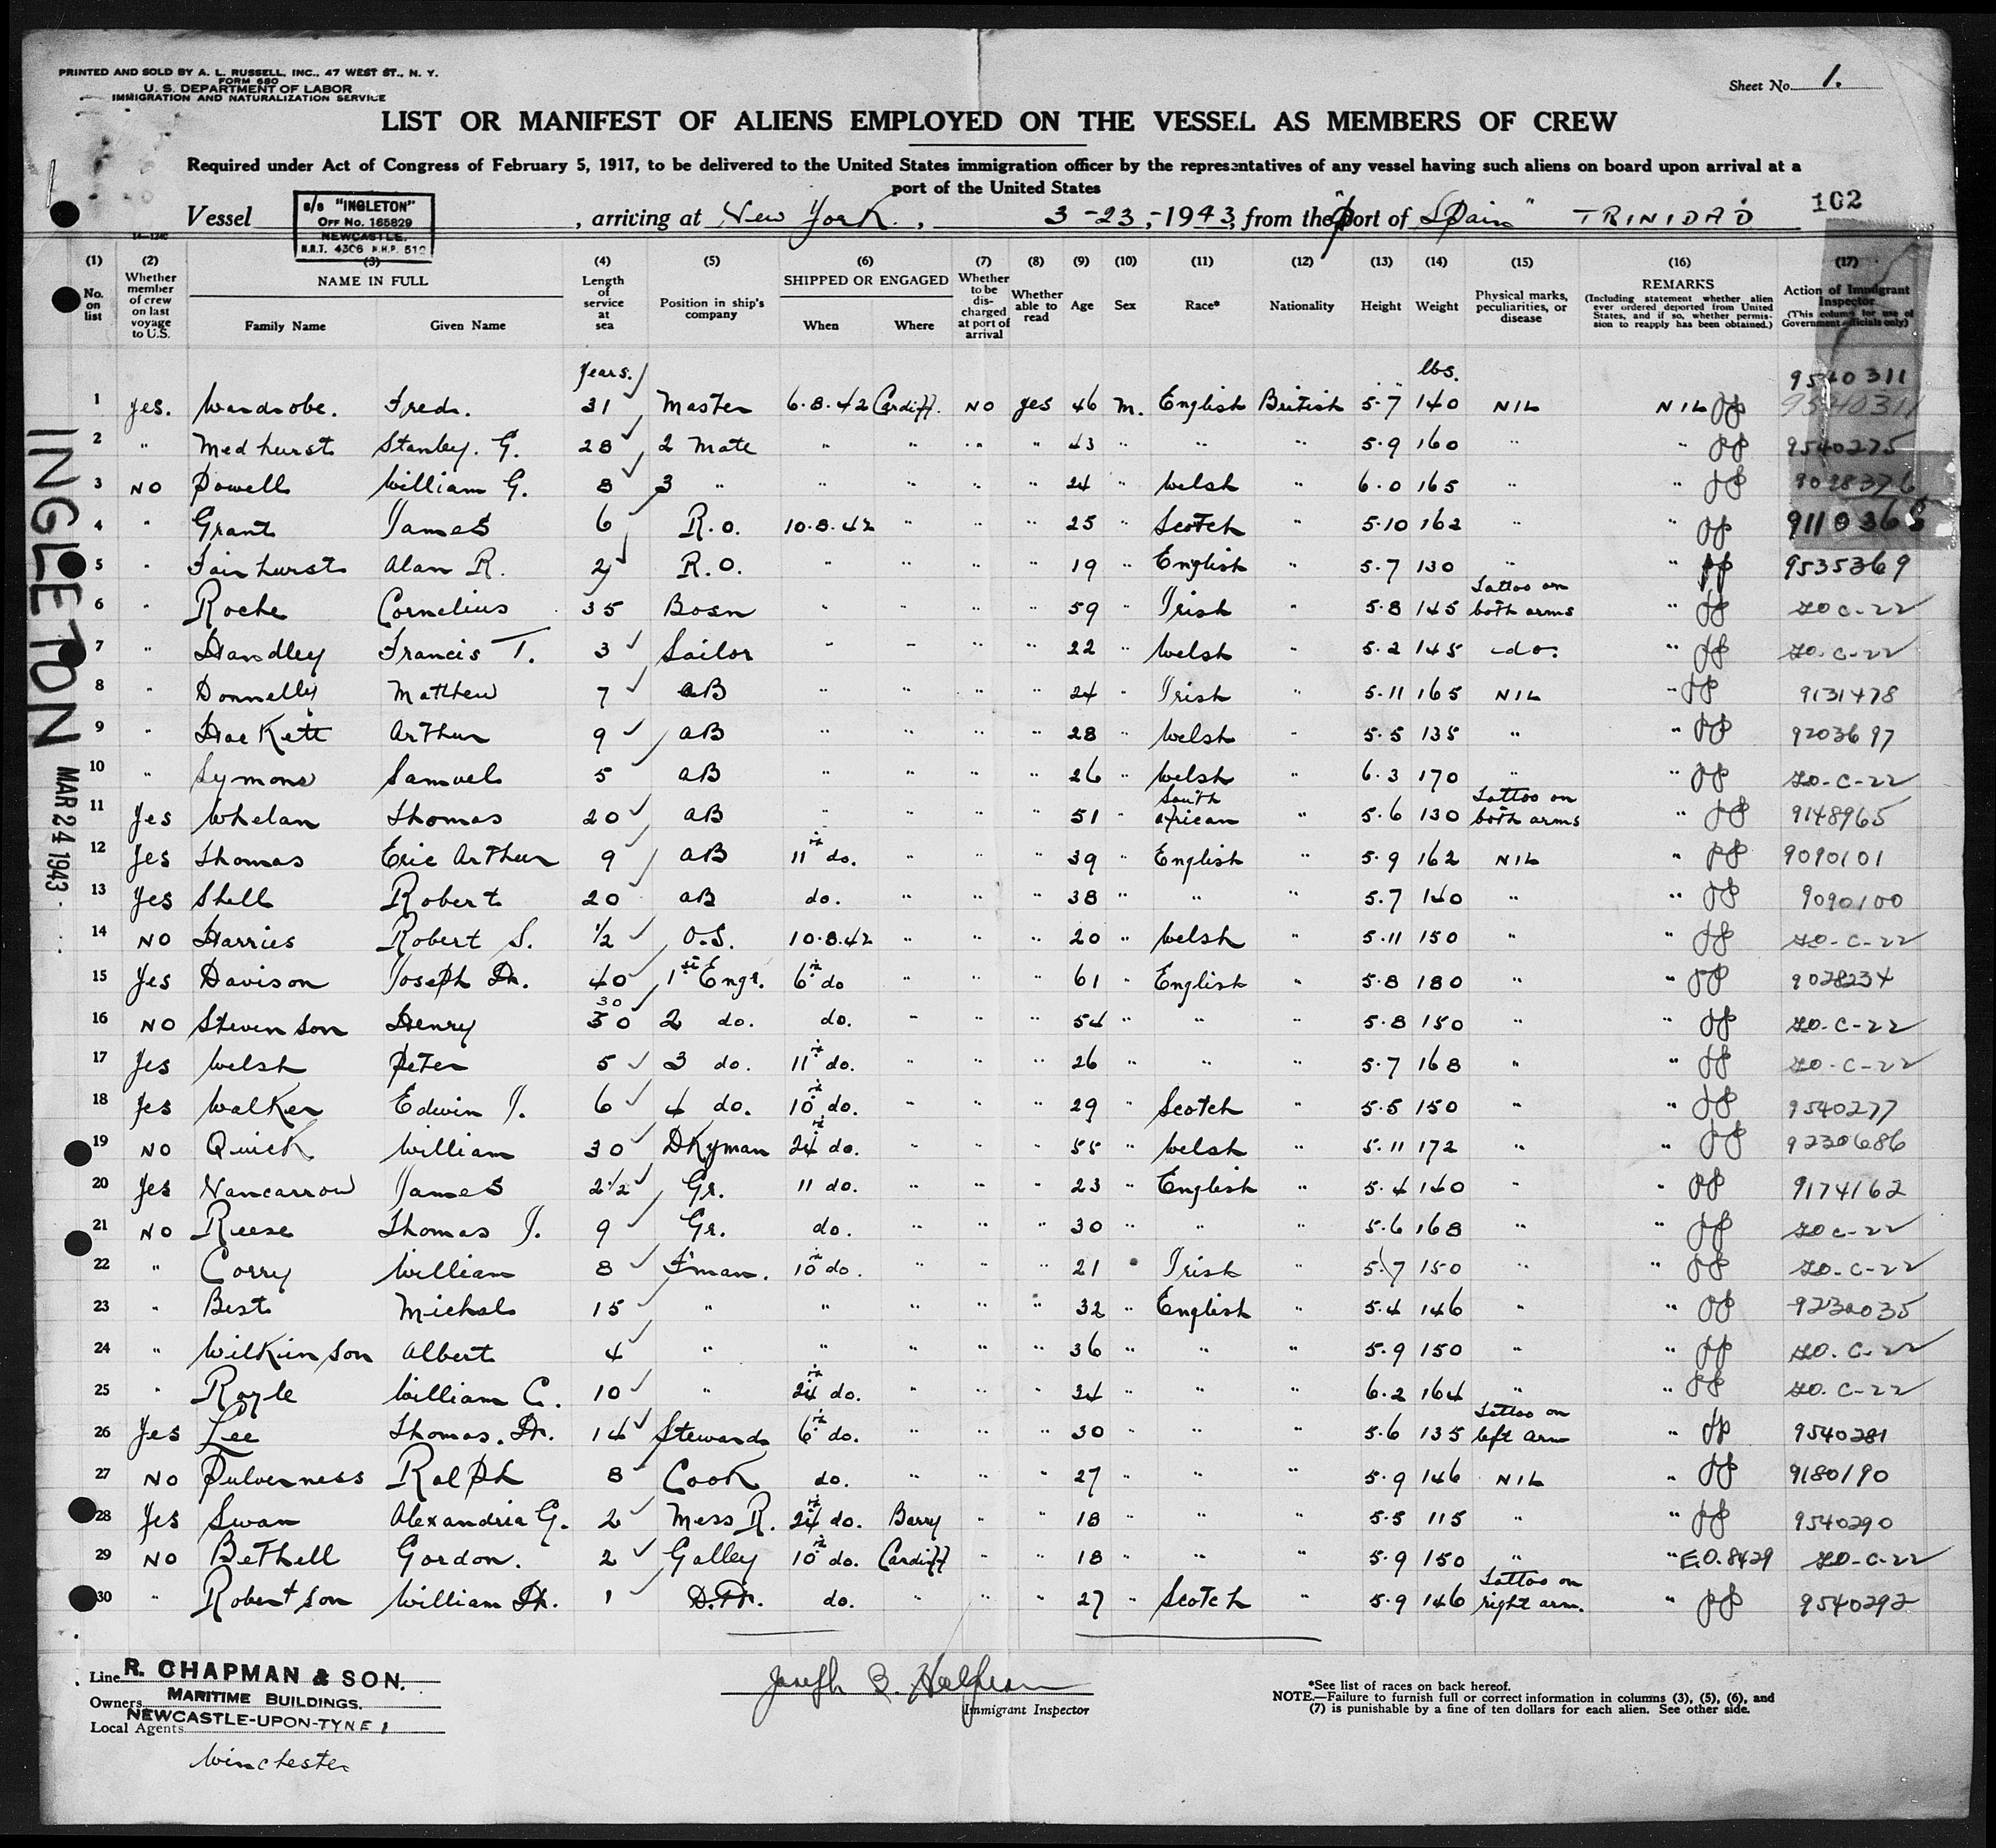 PRINTED AND SOLD BY A. L. RUSSELL, INC., 47 WEST ST., N. Y.
FORM 680
U. S. DEPARTMENT OF LABOR
IMMIGRATION AND NATURALIZATION SERVICE
Sheet No. 1.
LIST OR MANIFEST OF ALIENS EMPLOYED ON THE VESSEL AS MEMBERS OF CREW
Required under Act of Congress of February 5, 1917, to be delivered to the United States immigration officer by the representatives of any vessel having such aliens on board upon arrival at a
port of the United States
102
s/s "INGLETON"
OFF No. 165829
NEWCASTLE.
N.R.T. 4306 N.H.P. 510
Vessel , arriving at New York , 3-23,-1943, from the port of "Spain" TRINIDAD
(1) No. on list
(2) Whether member of crew on last voyage to U.S.
(3) NAME IN FULL Family Name Given Name
(4) Length of service at sea
(5) Position in ship's company
(6) SHIPPED OR ENGAGED When Where
(7) Whether to be discharged at port of arrival
(8) Whether able to read
(9) Age
(10) Sex
(11) Race*
(12) Nationality
(13) Height
(14) Weight
(15) Physical marks, peculiarities, or disease
(16) REMARKS (Including statement whether alien ever ordered deported from United States, and if so, whether permission to reapply has been obtained.)
(17) Action of Immigrant Inspector (This column for use of Government officials only)
years. lbs. 9540311
1 yes. Wardrobe. Fredk. 31 Master 6.8.42 Cardiff. NO yes 46 M. English British 5.7 140 NIL NIL 9540311
2 " Medhurst Stanley. G. 28 2 Mate " " " " 43 " " " 5.9 160 " " 9540275
3 NO Powell William G. 8 3 " " " " " 24 " Welsh " 6.0 165 " " 9028376
4 " Grant James 6 R.O. 10.8.42 " " " 25 " Scotch " 5.10 162 " " 9110365
5 " Fairhurst Alan R. 2 R.O. " " " " 19 " English " 5.7 130 " " 9535369
6 " Roche Cornelius 35 Bosn " " " " 59 " Irish " 5.8 145 Tattoo on both arms " ZO C-22
7 " Handley Francis T. 3 Sailor " " " " 22 " Welsh " 5.2 145 -do. " ZO-C-22
8 " Donnelly Matthew 7 AB " " " " 24 " Irish " 5.11 165 NIL " 9131478
9 " Hackett Arthur 9 AB " " " " 28 " Welsh " 5.5 135 " " 9203697
10 " Symons Samuel 5 AB " " " " 26 " Welsh " 6.3 170 " " ZO-C-22
11 Yes Whelan Thomas 20 AB " " " " 51 " South African " 5.6 130 Tattoo on both arms " 9148965
12 Yes Thomas Eric Arthur 9 AB 11th do. " " " 39 " English " 5.9 162 NIL " 9090101
13 Yes Shell Robert 20 AB do. " " " 38 " " " 5.7 140 " " 9090100
14 NO Harries Robert S. ½ O.S. 10.8.42 " " " 20 " Welsh " 5.11 150 " " ZO-C-22
15 Yes Davison Joseph Hr. 40 1st Engr. 6th do " " " 61 " English " 5.8 180 " " 9028234
16 NO Stevenson Henry 30 2 do. do. " " " 54 " " " 5.8 150 " " ZO-C-22
17 Yes Welsh Peter 5 3 do. 11th do. " " " 26 " " " 5.7 168 " " ZO-C-22
18 Yes Walker Edwin J. 6 4 do. 10th do. " " " 29 " Scotch " 5.5 150 " " 9540277
19 NO Quick William 30 DKyman 24th do. " " " 55 " Welsh " 5.11 172 " " 9230686
20 Yes Nancarrow James 2½ Gr. 11 do. " " " 23 " English " 5.4 140 " " 9174162
21 NO Reese Thomas J. 9 Gr. do. " " " 30 " " " 5.6 168 " " ZO C-22
22 " Corry William 8 F'man. 10th do. " " " 21 " Irish " 5.7 150 " " ZO-C-22
23 " Best Michal 15 " " " " " 32 " English " 5.4 146 " " 9230035
24 " Wilkinson Albert 4 " " " " " 36 " " " 5.9 150 " " ZO. C-22
25 " Royle William C. 10 " 24th do. " " " 34 " " " 6.2 164 " " ZO. C-22
26 Yes Lee Thomas. Hr. 14 Steward 6th do. " " " 30 " " " 5.6 135 Tattoo on left arm " 9540281
27 NO Pulverness Ralph 8 Cook do. " " " 27 " " " 5.9 146 NIL " 9180190
28 Yes Swan Alexandria G. 2 Mess R. 24th do. Barry " " 18 " " " 5.5 115 " " 9540290
29 NO Bethell Gordon. 2 Galley 10th do. Cardiff " " 18 " " " 5.9 150 " " E.O. 8429 ZO-C-22
30 " Robertson William Hr. 1 do. " " " 27 " Scotch " 5.9 146 Tattoo on right arm. " 9540292
INGLETON
MAR 24 1943
Line R. CHAPMAN & SON.
Owners MARITIME BUILDINGS.
Local Agents NEWCASTLE-UPON-TYNE 1
Winchester
Joseph
Immigrant Inspector
*See list of races on back hereof.
NOTE.—Failure to furnish full or correct information in columns (3), (5), (6), and
(7) is punishable by a fine of ten dollars for each alien. See other side.